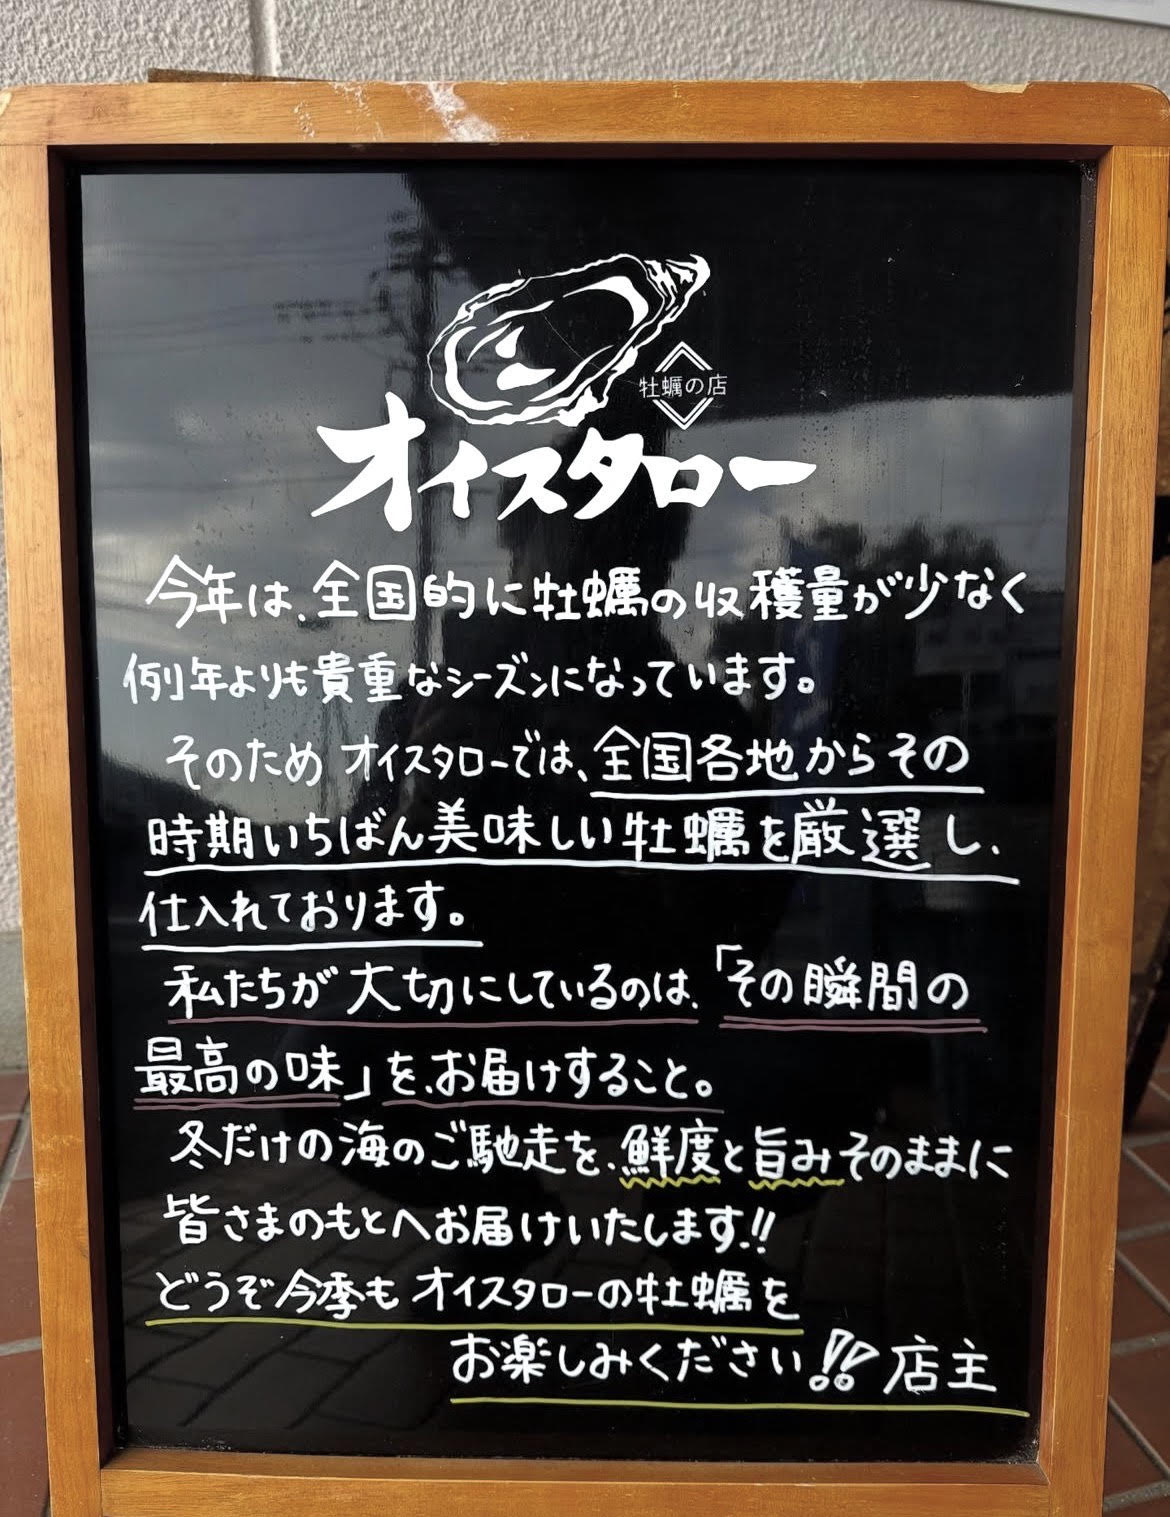 牡蠣の店
オイスタロー
今年は、全国的に牡蠣の収穫量が少なく
例年よりも貴重なシーズンになっています。
そのため オイスタローでは、全国各地からその
時期いちばん美味しい牡蠣を厳選し、
仕入れております。
私たちが大切にしているのは、「その瞬間の
最高の味」を、お届けすること。
冬だけの海のご馳走を、鮮度と旨みそのままに
皆さまのもとへお届けいたします!!
どうぞ今季も オイスタローの牡蠣を
お楽しみください!! 店主